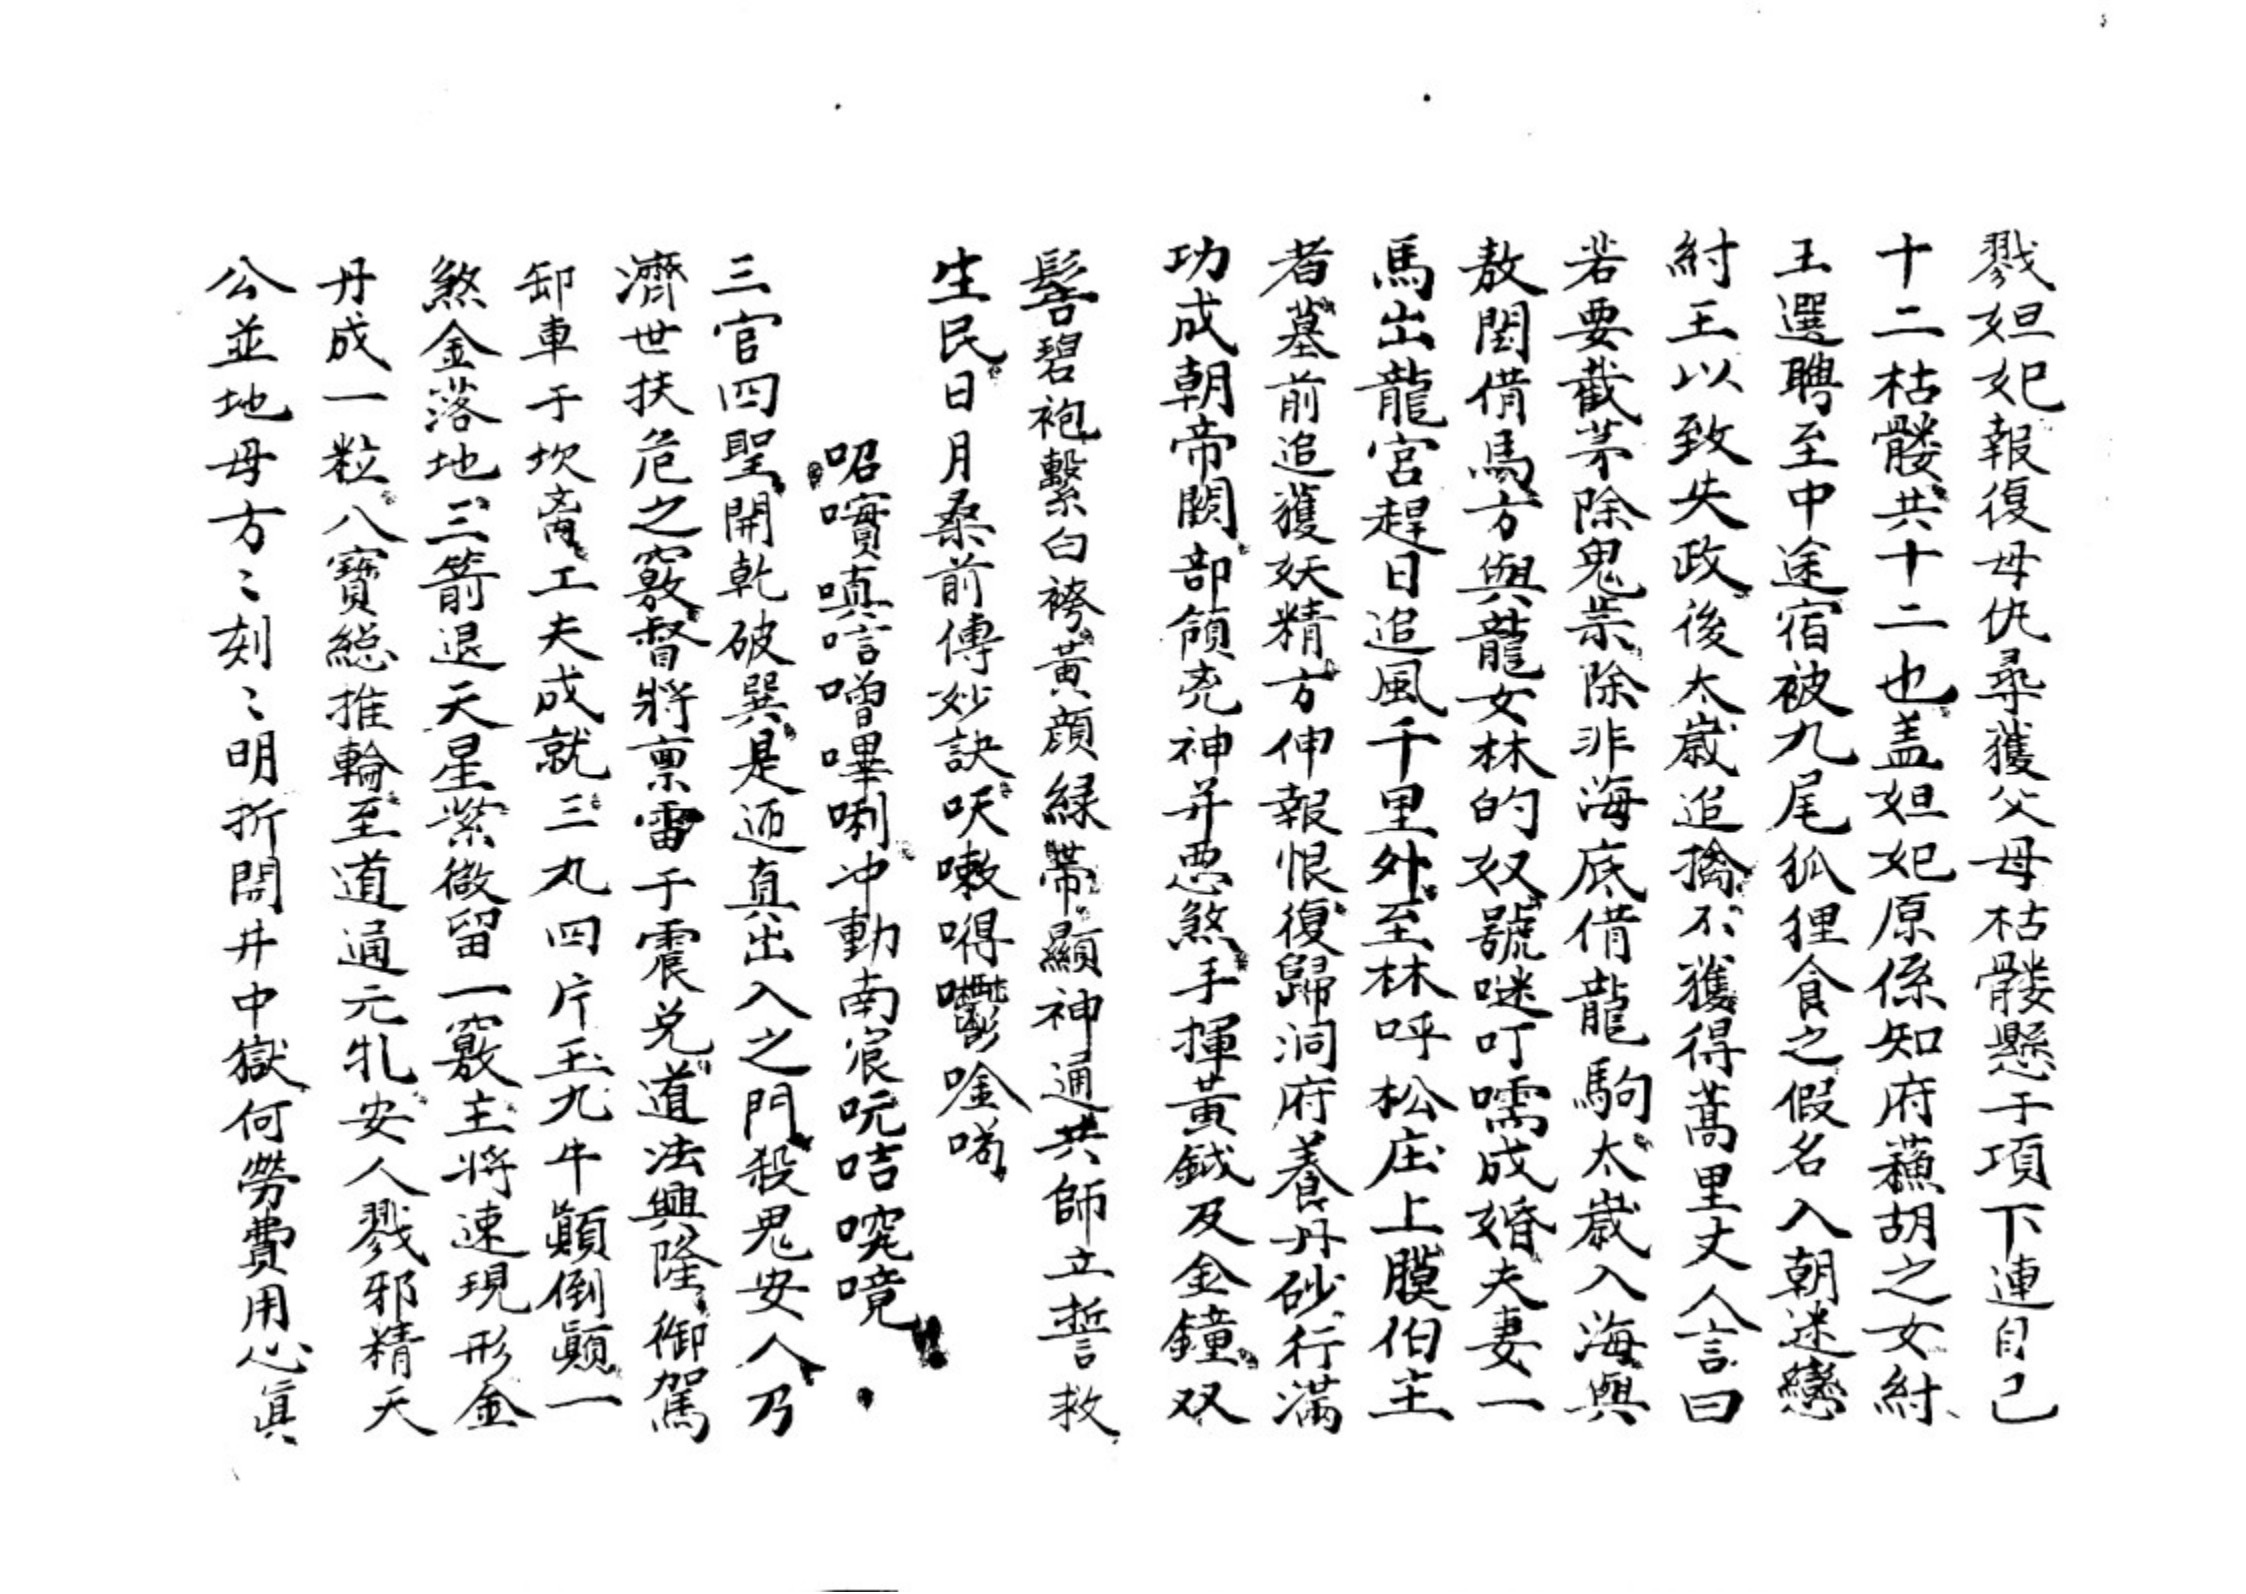 戮妲妃報復母仇尋獲父母枯髏懸于項下連自己
十二枯髏共十二也盖妲妃原係知府蘓胡之女紂
王選聘至中途宿被九尾狐狸食之假名入朝迷戀
紂王以致失政後太歲追擒不獲得蒿里丈人言曰
若要截茅除鬼祟除非海底借龍駒太歲入海與
敖閏借馬方與龍女林的奴號嗞叮嚅成婚夫妻一
馬出龍宮趕日追風千里外至林呼松庄上膜伯主
者墓前追獲妖精方伸報恨復歸洞府養丹砂行滿
功成朝帝闕部領兇神并惡煞手揮黃鉞及金鐘双
髻碧袍繫白袴黃顔緑帶顯神通共師立誓救
生民日月桑前傳妙訣呋嗽嘚唫
㕷噴嗔唁噌嗶唎冲動南宸吮咭嚀噫
三官四聖開乾破巽是迺真出入之門殺鬼安人乃
濟世扶危之竅督將禀雷于震兌道法興隆御駕
卸車于坎离工夫成就三丸四片玉九牛顛倒顛一
煞金落地三箭退天星紫微留一竅主將速現形金
丹成一粒八寶総推輪至道通元牝安人戮邪精天
公並地母方〻刻〻明折開井中獄何勞費用心真